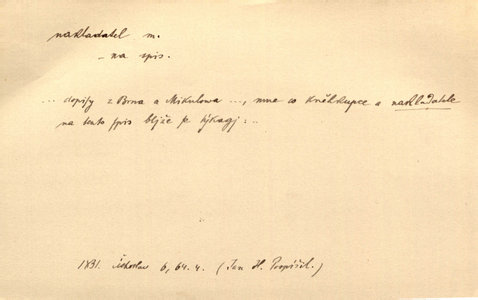 nakladatel m.
– na spis.
... dopisy z Brna a Mikulowa ..., mne co kněhkupce a nakladatele
na tento spis bljže se týkagj : ..
1831. Čechoslav 6, 64. 4. (Jan H. Pospíšil.)